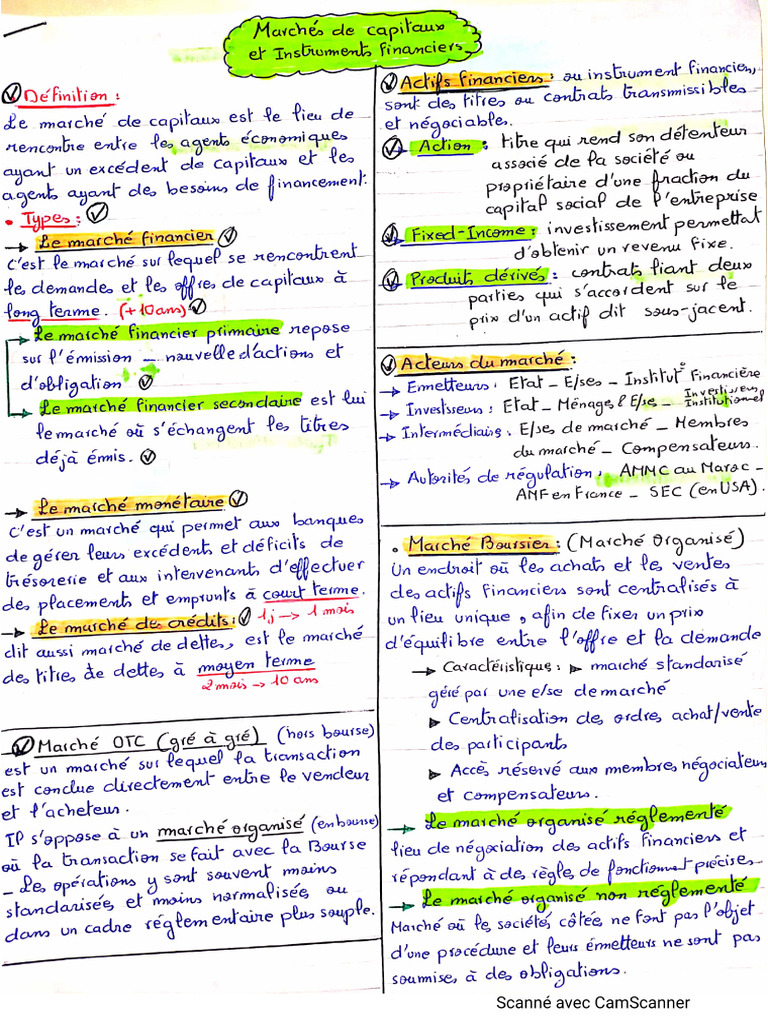 Marchés de capitaux
et Instruments financiers.
Définition :
Le marché de capitaux est le lieu de
rencontre entre les agents économiques
ayant un excédent de capitaux et les
agents ayant des besoins de financement.
• Types :
→ Le marché financier
C'est le marché sur lequel se rencontrent
les demandes et les offres de capitaux à
long terme. (+10ans)
Le marché financier primaire repose
sur l'émission _ nouvelle d'actions et
d'obligation
Le marché financier secondaire est lui
le marché où s'échangent les titres
déjà émis.
→ Le marché monétaire
C'est un marché qui permet aux banques
de gérer leurs excédents et déficits de
trésorerie et aux intervenants d'effectuer
des placements et emprunts à court terme.
1j → 1 mois
→ Le marché des crédits :
dit aussi marché de dettes, est le marché
des titres de dettes à moyen terme
2 mois → 10 ans
Marché OTC (gré à gré) (hors bourse)
est un marché sur lequel la transaction
est conclue directement entre le vendeur
et l'acheteur.
Il s'oppose à un marché organisé (en bourse)
où la transaction se fait avec la Bourse
_ Les opérations y sont souvent moins
standarisées et moins normalisées, ou
dans un cadre réglementaire plus souple.
Actifs financiers : ou instrument financier,
sont des titres ou contrats transmissibles
et négociables.
Action : titre qui rend son détenteur
associé de la société ou
propriétaire d'une fraction du
capital social de l'entreprise
Fixed-Income : investissement permettat
d'obtenir un revenu fixe.
Produits dérivés : contrats liant deux
parties qui s'accordent sur le
prix d'un actif dit sous-jacent.
Acteurs du marché :
→ Emetteurs : Etat _ E/ses _ Institut° Financière
→ Investisseurs : Etat _ Ménages E/se _ Investisseurs Institutionnel
→ Intermédiaire : E/ses de marché _ Membres
du marché _ Compensateurs.
→ Autorités de régulation : AMMC au Maroc _
AMF en France _ SEC (en USA).
• Marché Boursier : (Marché Organisé)
Un endroit où les achats et les ventes
des actifs financiers sont centralisés à
un lieu unique, afin de fixer un prix
d'équilibre entre l'offre et la demande
→ Caractéristique : ▶ marché standarisé
géré par une e/se de marché
▶ Centralisation des ordres achat/vente
des participants
▶ Accès réservé aux membres négociateurs
et compensateurs.
→ Le marché organisé réglementé
lieu de négociation des actifs financiers et
répondant à des règles de fonctionmt précises
→ Le marché organisé non réglementé
Marché où les sociétés côtées ne font pas l'objet
d'une procédure et leurs émetteurs ne sont pas
soumise, à des obligations.
Scanné avec CamScanner